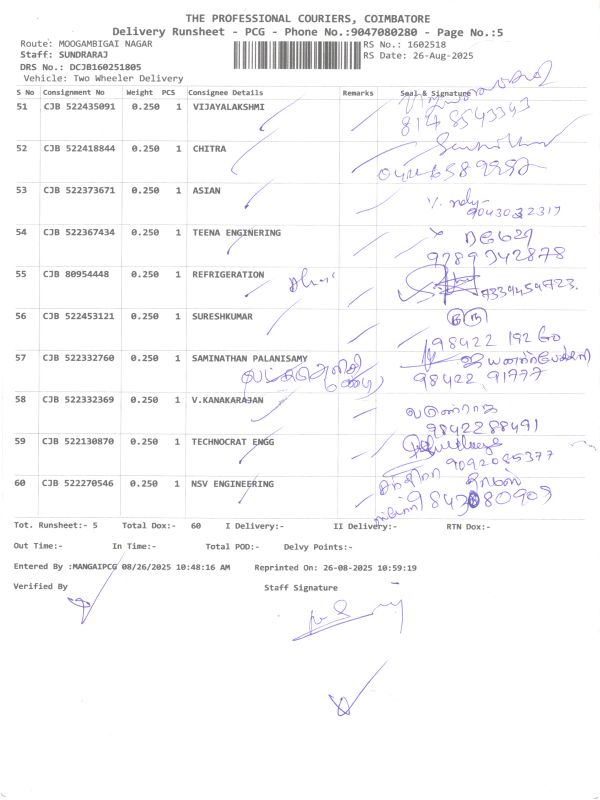 THE PROFESSIONAL COURIERS, COIMBATORE
Delivery Runsheet - PCG - Phone No.:9047080280 - Page No.:5
Route: MOOGAMBIGAI NAGAR RS No.: 1602518
Staff: SUNDRARAJ RS Date: 26-Aug-2025
DRS No.: DCJB160251805
Vehicle: Two Wheeler Delivery
S No Consignment No Weight PCS Consignee Details Remarks Seal & Signature
51 CJB 522435091 0.250 1 VIJAYALAKSHMI
8148543343
52 CJB 522418844 0.250 1 CHITRA
53 CJB 522373671 0.250 1 ASIAN
9043032317
54 CJB 522367434 0.250 1 TEENA ENGINERING
9789342878
55 CJB 80954448 0.250 1 REFRIGERATION
9339454723.
56 CJB 522453121 0.250 1 SURESHKUMAR
98422 19260
57 CJB 522332760 0.250 1 SAMINATHAN PALANISAMY
98422 91777
58 CJB 522332369 0.250 1 V.KANAKARAJAN
9842288491
59 CJB 522130870 0.250 1 TECHNOCRAT ENGG
9092085377
60 CJB 522270546 0.250 1 NSV ENGINEERING
Tot. Runsheet:- 5 Total Dox:- 60 I Delivery:- II Delivery:- RTN Dox:-
Out Time:- In Time:- Total POD:- Delvy Points:-
Entered By :MANGAIPCG 08/26/2025 10:48:16 AM Reprinted On: 26-08-2025 10:59:19
Verified By Staff Signature